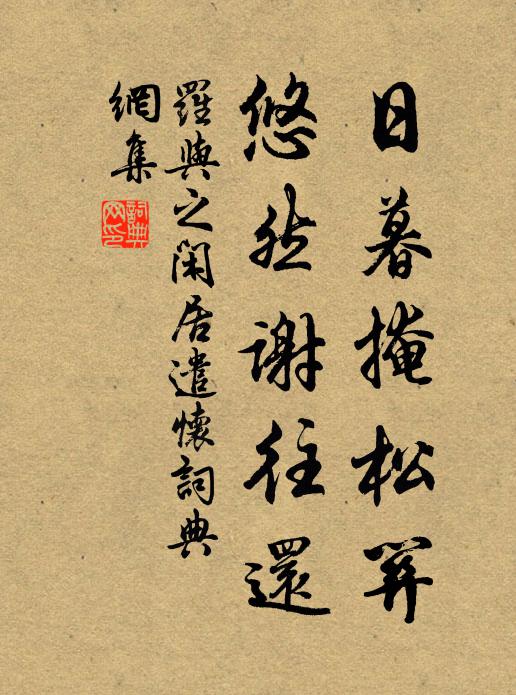 日暮掩松關
悠然謝往還
羅與之閑居遣懷詞典
網集
詞典網印